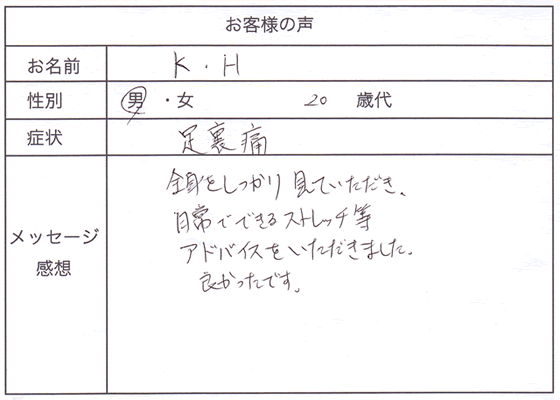 お客様の声
お名前 K・H
性別 男・女 20 歳代
症状 足裏痛
メッセージ
感想
全身をしっかり見ていただき、
日常でできるストレッチ等
アドバイスをいただきました。
良かったです。